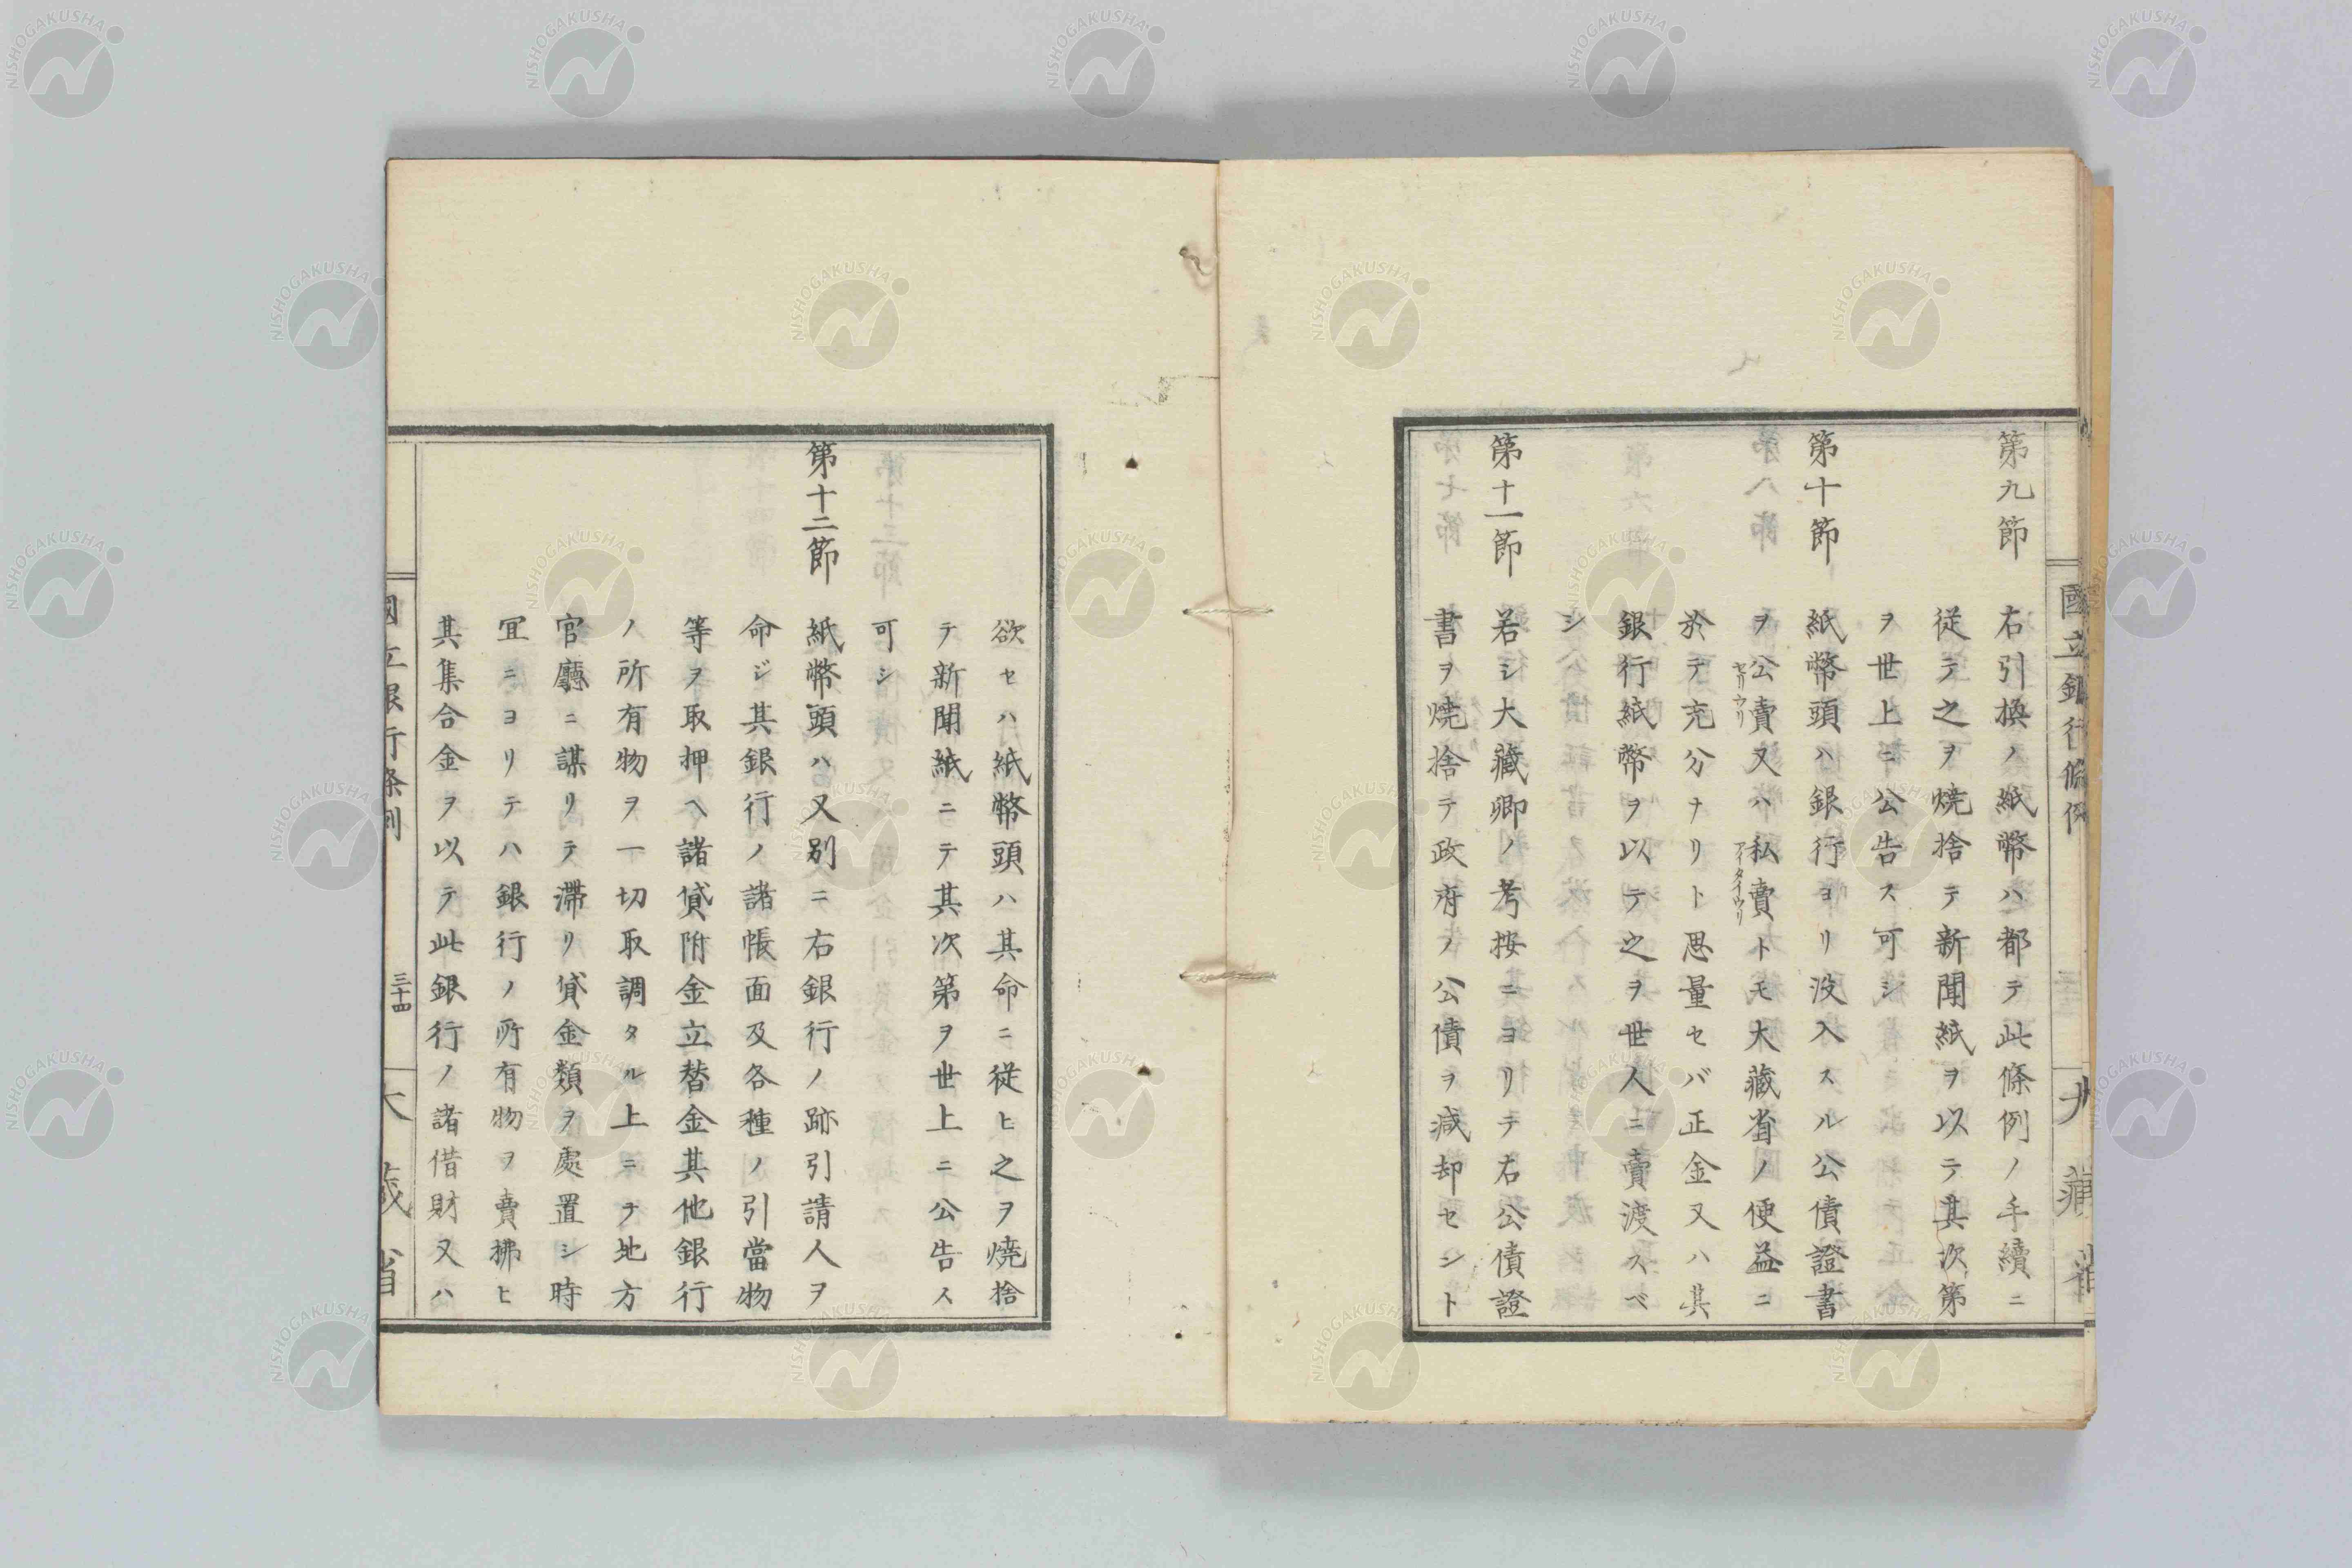 國立銀行條例
大藏省
第九節 右引換ノ紙幣ハ都テ此條例ノ手續ニ
從テ之ヲ燒捨テ新聞紙ヲ以テ其次第
ヲ世上ニ公告ス可シ
第十節 紙幣頭ハ銀行ヨリ沒入スル公債證書
ヲ公賣又ハ私賣トモ大藏省ノ便益ニ
セリウリ
アイタイウリ
於テ充分ナリト思量セバ正金又ハ其
銀行紙幣ヲ以テ之ヲ世人ニ賣渡スベ
シ
第十一節 若シ大藏卿ノ考按ニヨリテ右公債證
書ヲ燒捨テ政府ノ公債ヲ減却セント
欲セハ紙幣頭ハ其命ニ從ヒ之ヲ燒捨
テ新聞紙ニテ其次第ヲ世上ニ公告ス
可シ
第十二節 紙幣頭ハ又別ニ右銀行ノ跡引請人ヲ
命ジ其銀行ノ諸帳面及各種ノ引當物
等ヲ取押ヘ諸貸附金立替金其他銀行
ノ所有物ヲ一切取調タル上ニテ地方
官廳ニ謀リテ滯リ貸金類ヲ處置シ時
冝ニヨリテハ銀行ノ所有物ヲ賣拂ヒ
其集合金ヲ以テ此銀行ノ諸借財又ハ
國立銀行條例
三十四
大藏省
NISHOGAKUSHA